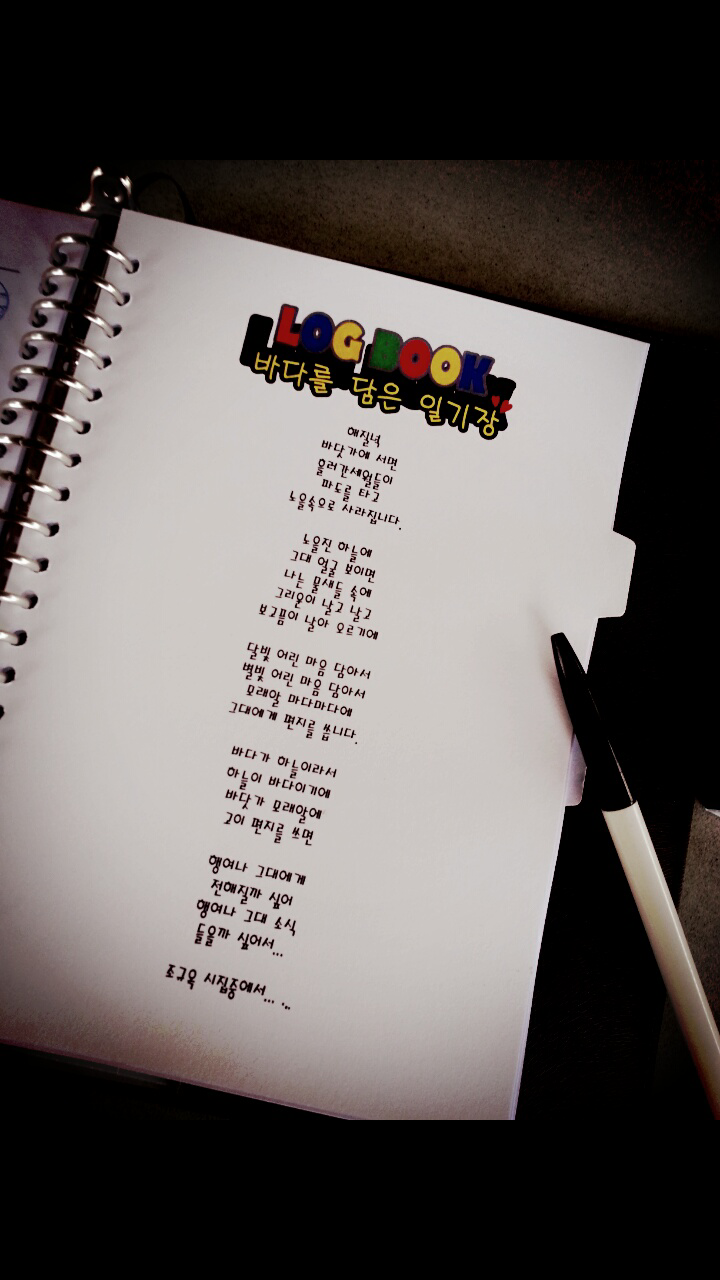 LOG BOOK
바다를 담은 일기장
해질녘
바닷가에 서면
흘러간세월들이
파도를 타고
노을속으로 사라집니다.
노을진 하늘에
그대 얼굴 보이면
나는 물새들 속에
그리운이 날고 날고
보고픔이 날아 오르기에
달빛 어린 마음 담아서
별빛 어린 마음 담아서
모래알 마다마다에
그대에게 편지를 씁니다.
바다가 하늘이라서
하늘이 바다이기에
바닷가 모래알에
고이 편지를 쓰면
행여나 그대에게
전해질까 싶어
행여나 그대 소식
들을까 싶어서...
조규옥 시집중에서... ...